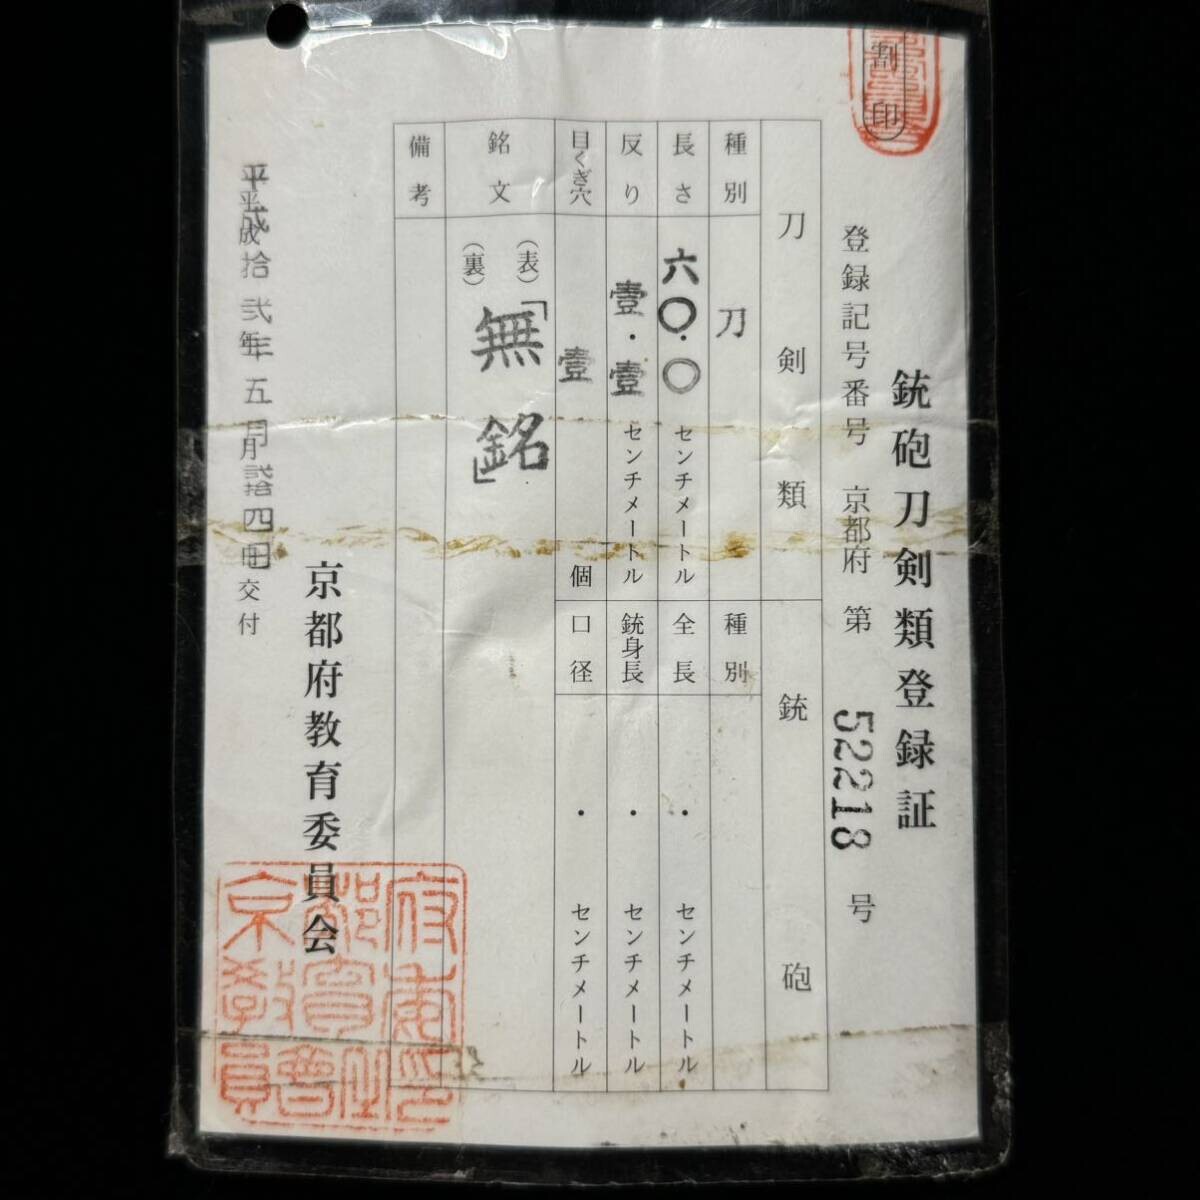 割印
銃砲刀剣類登録証
登録記号番号 京都府 第 52218 号
刀剣類
銃砲
種別 刀
種別
長さ 六〇.〇 センチメートル
全長 ・ センチメートル
反り 壹.壹 センチメートル
銃身長 ・ センチメートル
目くぎ穴 壹 個
口径 ・ センチメートル
銘文 (表) 「無銘」
(裏)
備考
平成拾弐年五月弐拾四日交付
京都府教育委員会